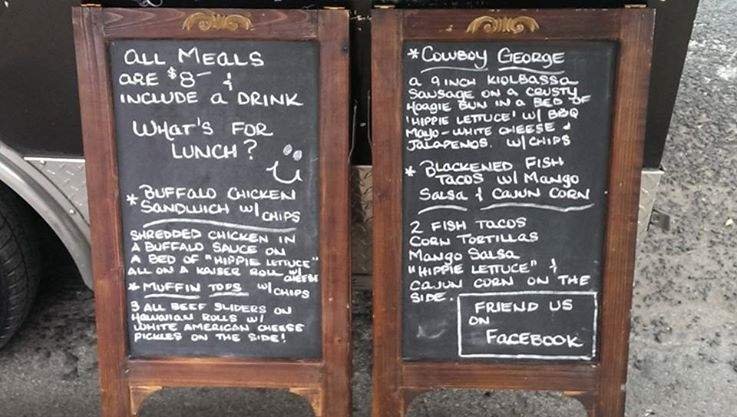 ALL MEALS
ARE $8- &
INCLUDE A DRINK
WHAT'S FOR
LUNCH?
* BUFFALO CHICKEN
SANDWICH W/ CHIPS
SHREDDED CHICKEN IN
A BUFFALO SAUCE ON
A BED OF "HIPPIE LETTUCE"
ALL ON A KAISER ROLL W/ CHEESE
* MUFFIN TOPS W/ CHIPS
3 ALL BEEF SLIDERS ON
HAWAIIAN ROLLS W/
WHITE AMERICAN CHEESE
PICKLES ON THE SIDE!
* COWBOY GEORGE
A 9 INCH KIOLBASSA
SAUSAGE ON A CRUSTY
HOAGIE BUN IN A BED OF
'HIPPIE LETTUCE' W/ BBQ
MAYO-WHITE CHEESE &
JALAPENOS. W/ CHIPS
* BLACKENED FISH
TACOS W/ MANGO
SALSA & CAJUN CORN
2 FISH TACOS
CORN TORTILLAS
MANGO SALSA
"HIPPIE LETTUCE" &
CAJUN CORN ON THE
SIDE.
FRIEND US
ON
FACEBOOK